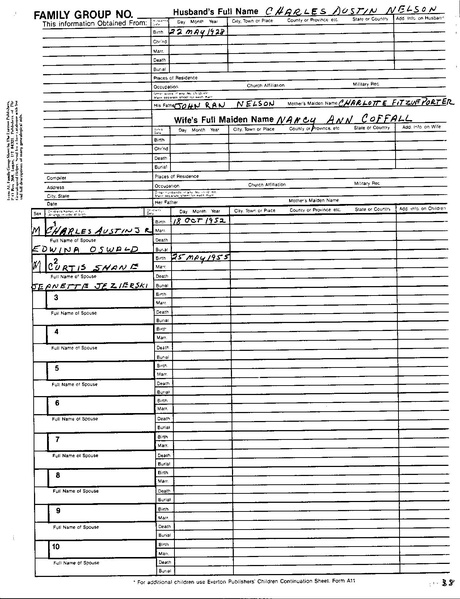 FAMILY GROUP NO.
Husband's Full Name CHARLES AUSTIN NELSON
This Information Obtained From:
Day Month Year City, Town or Place County or Province, etc. State or Country Add. Info on Husband
Birth 22 MAY 1928
Chr'nd
Marr.
Death
Burial
Places of Residence
Occupation Church Affiliation Military Rec.
His Father JOHN RAN NELSON Mother's Maiden Name CHARLOTTE FITZUF PORTER
Wife's Full Maiden Name NANCY ANN COFFALL
Day Month Year City, Town or Place County or Province, etc. State or Country Add. Info on Wife
Birth
Chr'nd
Death
Burial
Compiler Places of Residence
Address Occupation Church Affiliation Military Rec.
City, State
Date Her Father Mother's Maiden Name
Sex Day Month Year City, Town or Place County or Province, etc. State or Country Add. Info on Children
1 Birth 18 OCT 1952
M CHARLES AUSTIN JR Marr.
Full Name of Spouse Death
EDWINA OSWALD Burial
2 Birth 25 MAY 1955
M CURTIS SHANE Marr.
Full Name of Spouse Death
JEANETTE JEZIERSKI Burial
3 Birth
Marr.
Full Name of Spouse Death
Burial
4 Birth
Marr.
Full Name of Spouse Death
Burial
5 Birth
Marr.
Full Name of Spouse Death
Burial
6 Birth
Marr.
Full Name of Spouse Death
Burial
7 Birth
Marr.
Full Name of Spouse Death
Burial
8 Birth
Marr.
Full Name of Spouse Death
Burial
9 Birth
Marr.
Full Name of Spouse Death
Burial
10 Birth
Marr.
Full Name of Spouse Death
Burial
* For additional children use Everton Publishers' Children Continuation Sheet, Form A11
38